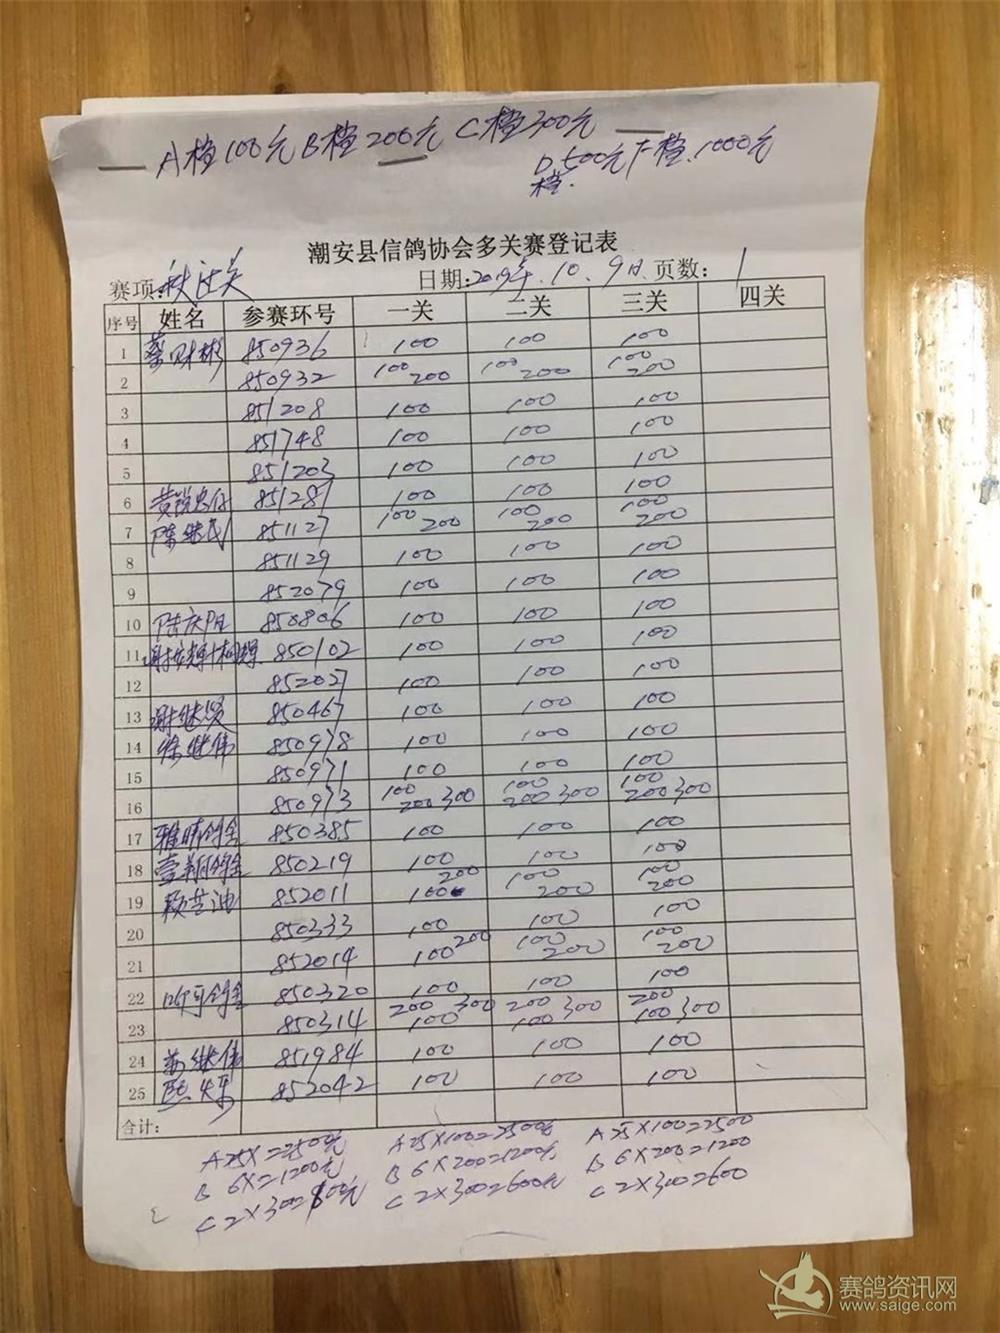 A档100元B档200元C档300元
D档.500元F档.1000元
潮安县信鸽协会多关赛登记表
赛项:秋三关 日期:2019年.10.9日.页数:1
序号 姓名 参赛环号 一关 二关 三关 四关
1 蔡财彬 850936 100 100 100
2 850932 100 200 100 200 100 200
3 851208 100 100 100
4 851748 100 100 100
5 851203 100 100 100
6 851281 100 100 100
7 陈继武 851127 100 200 100 200 100 200
8 851129 100 100 100
9 852079 100 100 100
10 850806 100 100 100
11 850102 100 100 100
12 852027 100 100 100
13 谢继贤 850467 100 100 100
14 徐继伟 850978 100 100 100
15 850971 100 100 100
16 850973 100 200 300 100 200 300 100 200 300
17 850385 100 100 100
18 壹翔鸽舍 850219 100 100 100
19 852011 200 100 100 200 100 200
20 850333 100 100 100
21 852014 100 200 100 200 100 200
22 850320 100 100 100
23 850314 200 300 100 200 300 100 200 300 100
24 851984 100 100 100
25 852042 100 100 100
合计:
A25X=2500元 A25X100=2500元 A25X100=2500
B 6X=1200元 B 6X200=1200元 B 6X200=1200
C2X300=600元 C2X300=600元 C2X300=600
赛鸽资讯网
www.saige.com